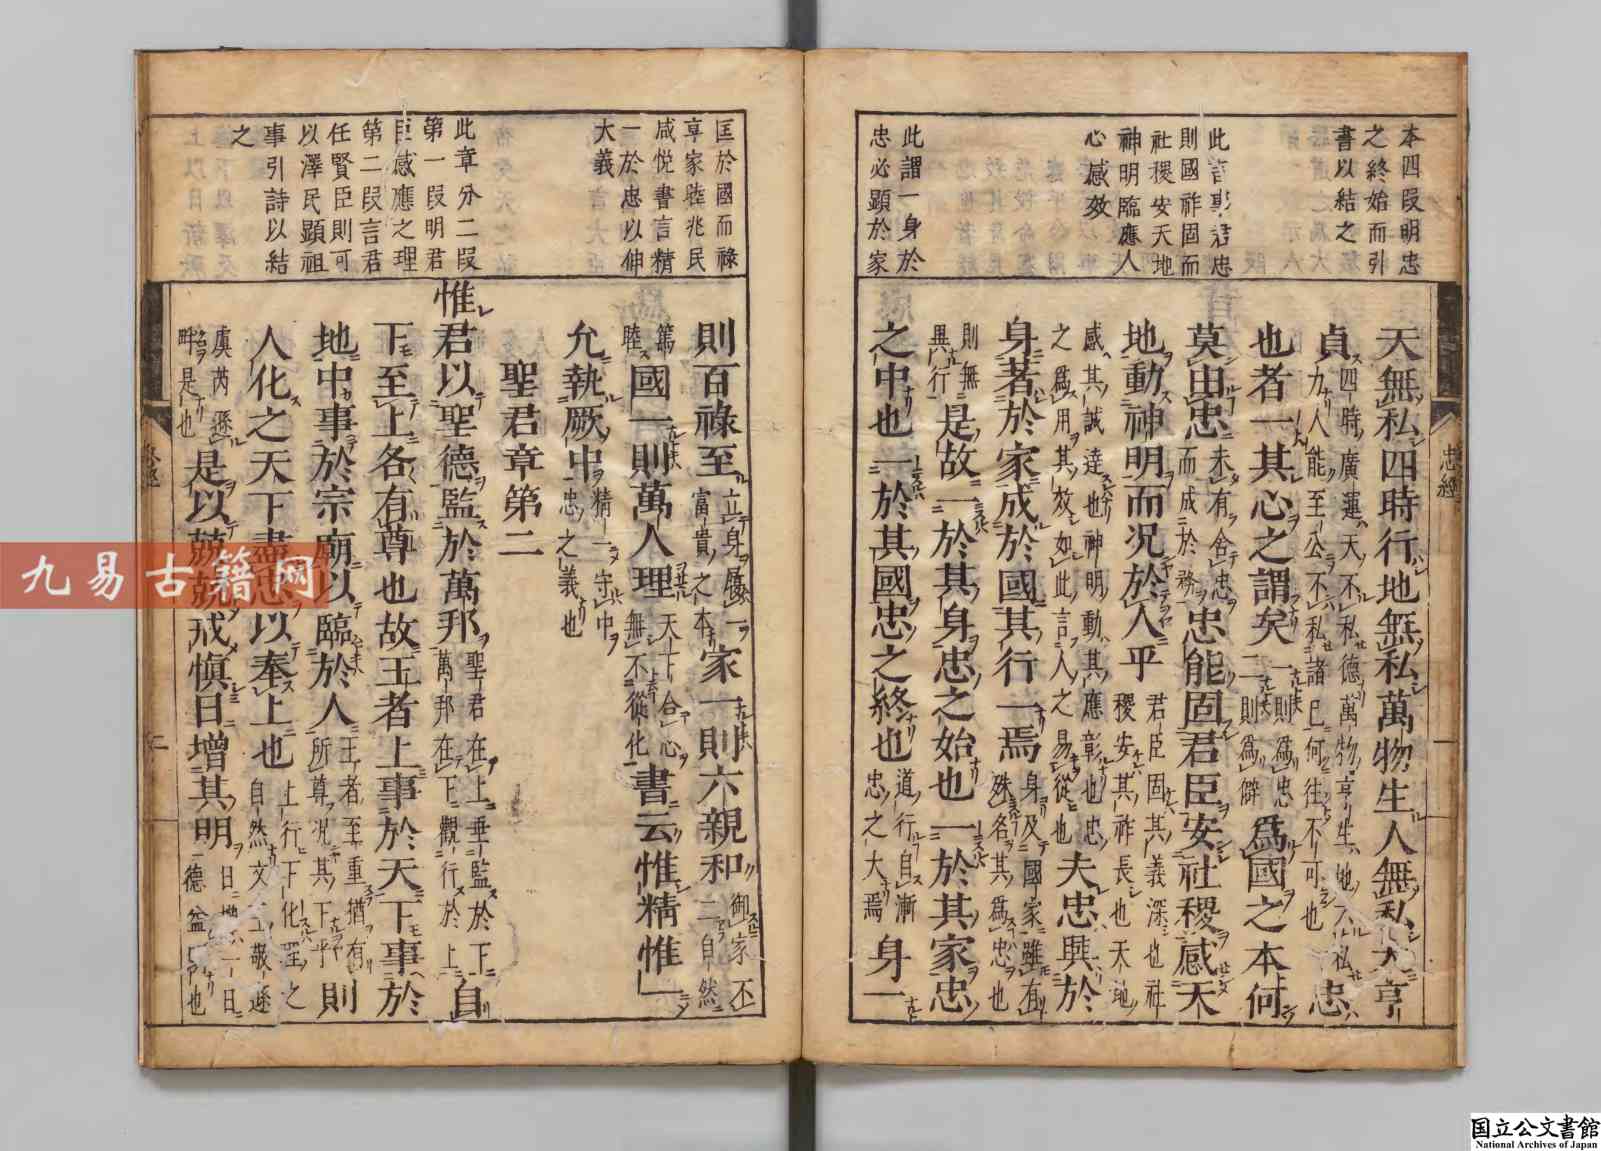 本四段明忠
之終始而引
書以結之
此言事君忠
則國祚固而
社稷安天地
神明臨應人
心感效
此謂一身於
忠必顯於家
天無私四時行地無私萬物生人無私大亨
貞四時廣運天不私德萬物亨生地不私
力人能至公不私諸已何往不可也
忠
也者一其心之謂矣一則為忠
二則為僻
為國之本何
莫由忠未有舍忠
而成於務
忠能固君臣安社稷感天
地動神明而況於人乎君臣固其義深也社
稷安其祚長也天地
感其誠達也神明動其應彰也忠
之為用其效如此言人之易從也
夫忠興於
身著於家成於國其行一焉身及國家雖有
殊名其為忠也
則無
異行
是故一於其身忠之始也一於其家忠
之中也一於其國忠之終也道行自漸
忠之大焉
身一
忠經
匡於國而祿
享家睦兆民
咸悅書言精
一於忠以伸
大義
此章分二段
第一段明君
臣感應之理
第二段言君
任賢臣則可
以澤民顯祖
事引詩以結
之
則百祿至立身履一
富貴之本
家一則六親和御家不
二自然
篤
睦
國一則萬人理天下合心
無不從化
書云惟精惟一
允執厥中精一守中
忠之義也
聖君章第二
惟君以聖德監於萬邦聖君在上垂監於下
萬邦在下觀行於上
自
下至上各有尊也故王者上事於天下事於
地中事於宗廟以臨於人王者至重猶有
所尊況其下乎
則
人化之天下盡忠以奉上也上行下化理之
自然文王敬遜
虞芮遜
畔是也
是以兢兢戒慎日增其明日增一日
德益明也
二
九易古籍网
国立公文書館
National Archives of Japan